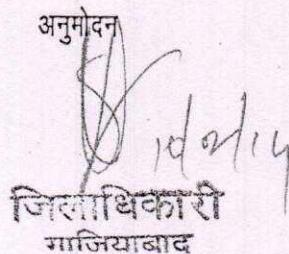 अनुमोदन
जिलाधिकारी
गाजियाबाद